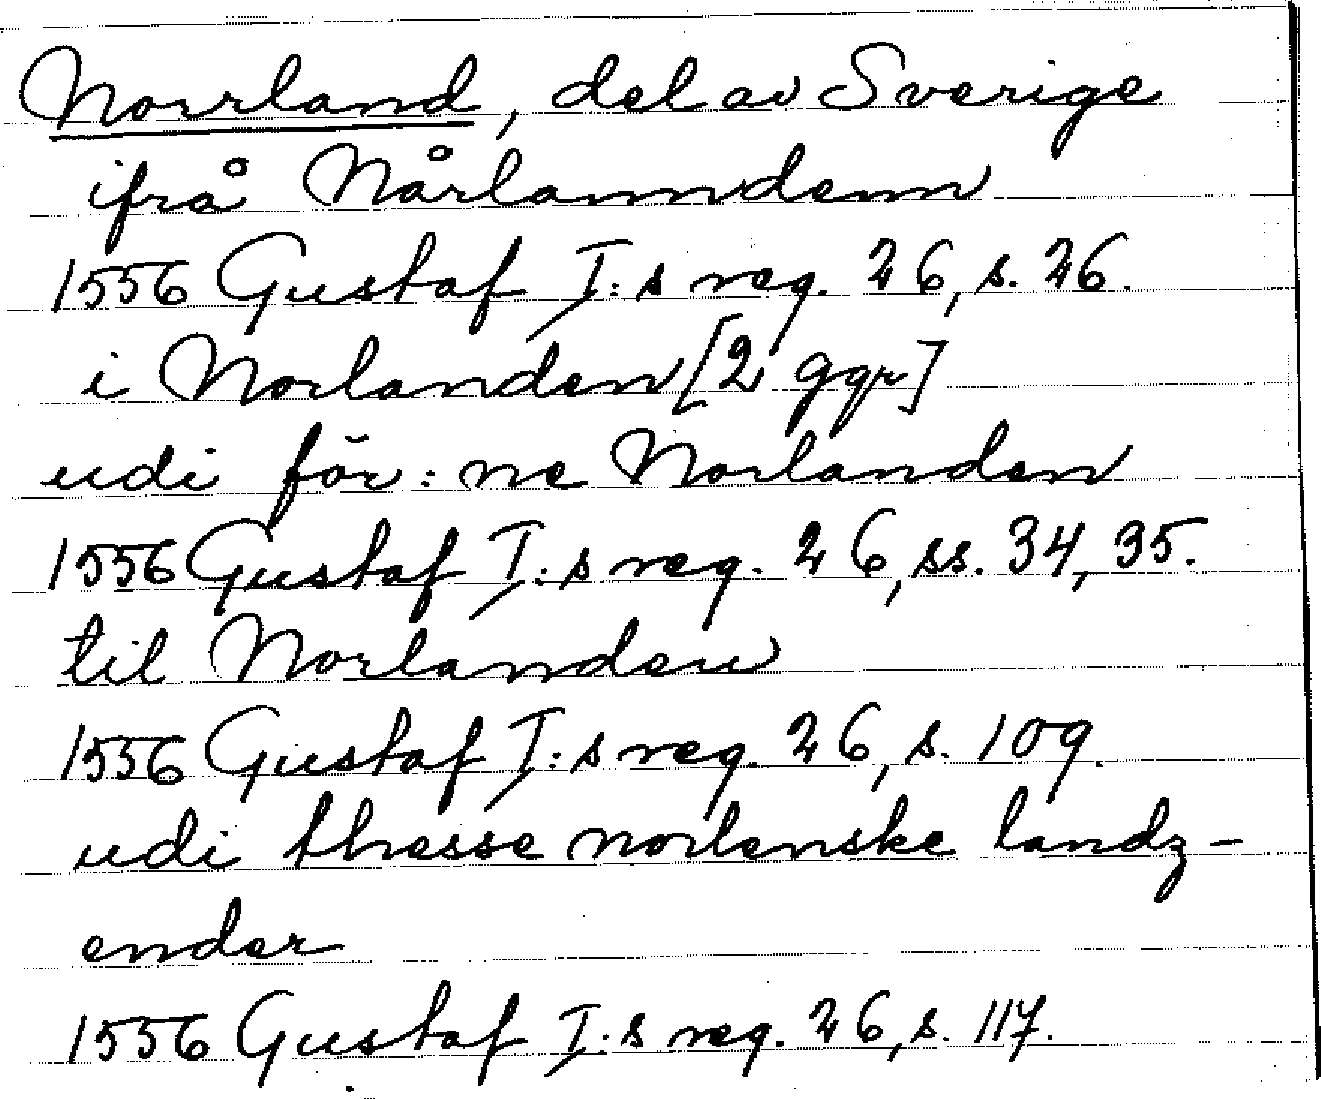 Norrland, del av Sverige
ifrå Nårlanndenn
1556 Gustaf I:s reg. 26, s. 26.
i Norlanden [2 ggr]
udi för:ne Norlanden
1556 Gustaf I:s reg. 26, ss. 34, 35.
til Norlanden
1556 Gustaf I:s reg. 26, s. 109.
udi thesse norlenske landz-
ender
1556 Gustaf I:s reg. 26, s. 117.